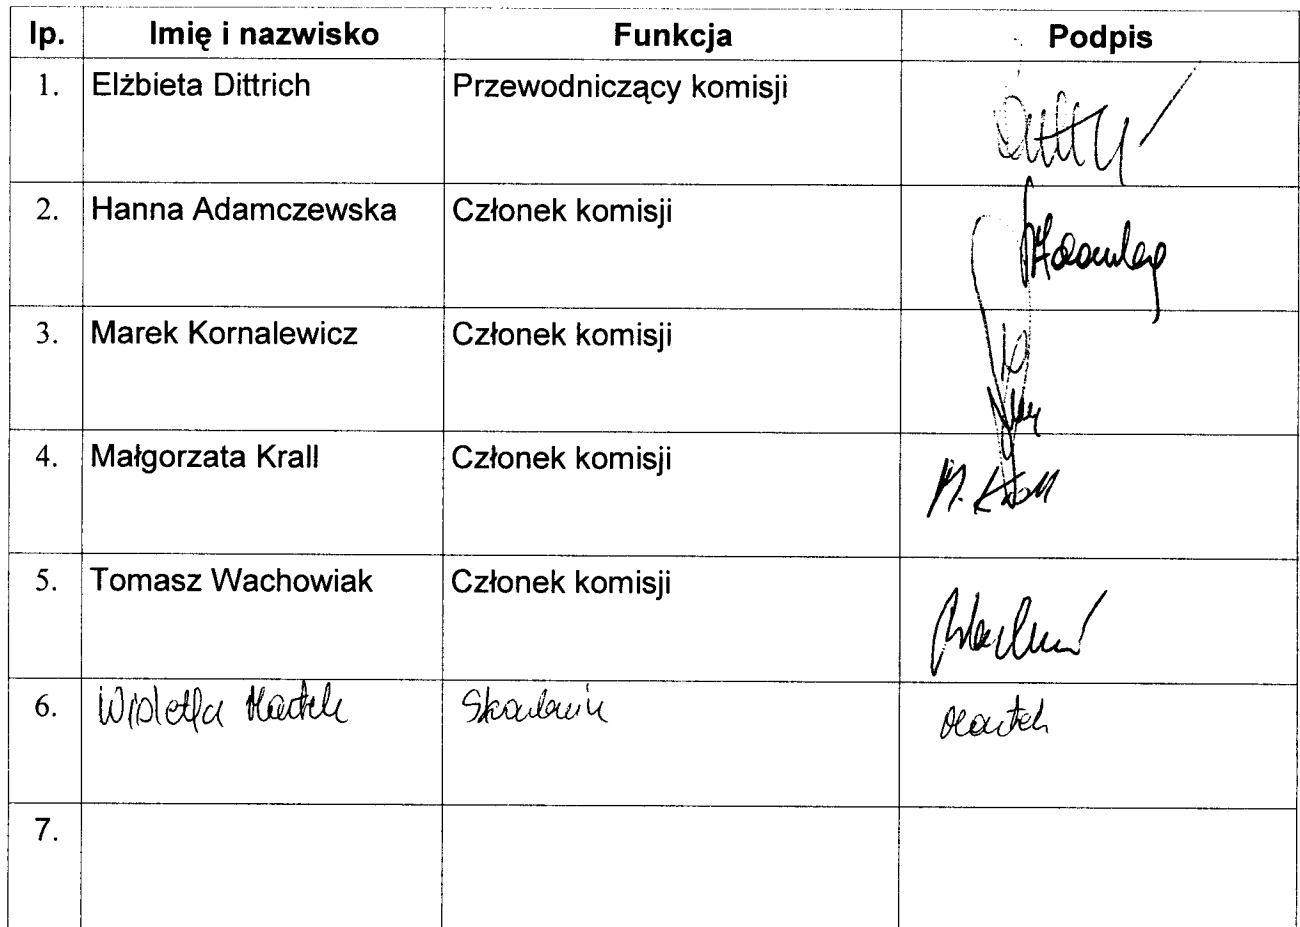 lp. Imię i nazwisko Funkcja Podpis
1. Elżbieta Dittrich Przewodniczący komisji
2. Hanna Adamczewska Członek komisji
3. Marek Kornalewicz Członek komisji
4. Małgorzata Krall Członek komisji M. Krall
5. Tomasz Wachowiak Członek komisji
6. Wioletta Skarbnik
7.